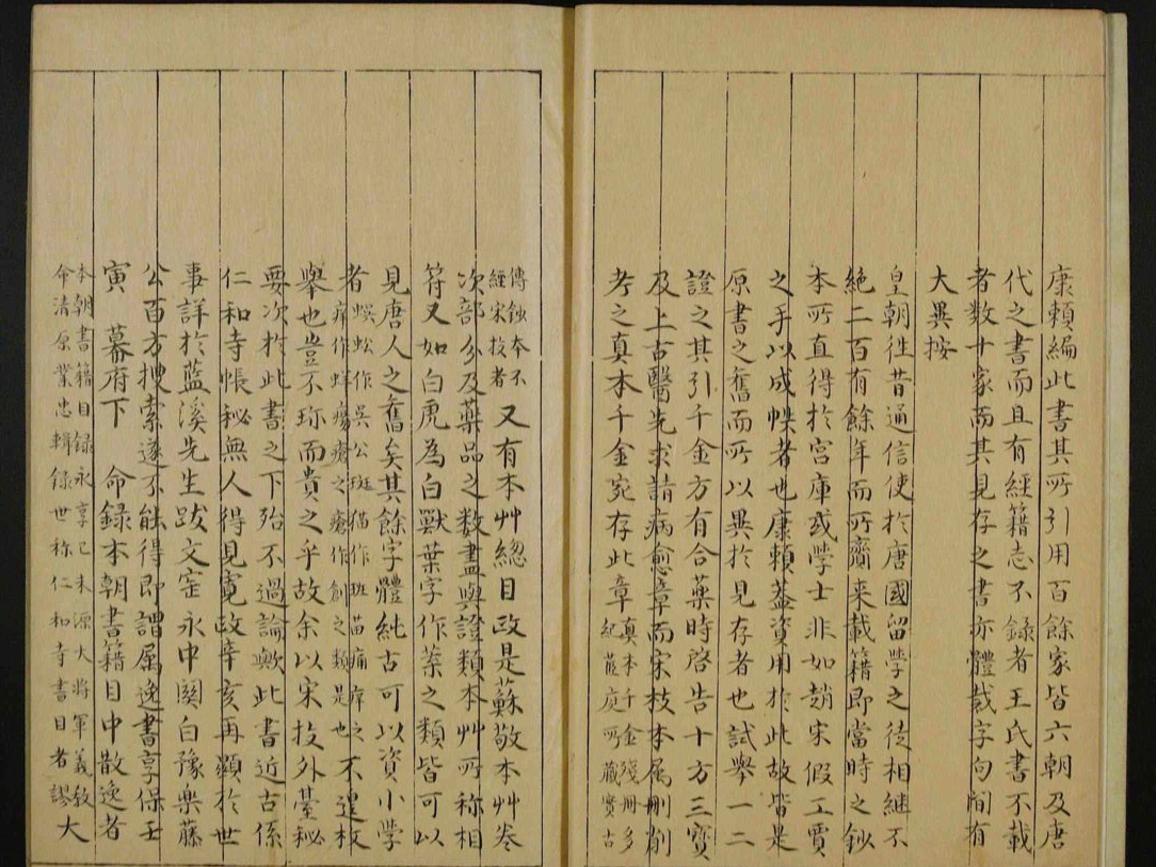 康頼編此書其所引用百餘家皆六朝及唐
代之書而且有經籍志不錄者王氏書不載
者數十家而其見存之書亦體裁字句間有
大異按
皇朝徃昔通信使於唐國留學之徒相継不
絶二百有餘年而所齎来載籍即當時之鈔
本所直得於宮庫或學士非如趙宋假工賈
之手以成帙者也康頼蓋資用於此故皆是
原書之舊而所以異於見存者也試舉一二
證之其引千金方有合藥時啓告十方三寳
及上古醫先求請病愈章而宋校本属刪削
考之真本千金宛存此章真本千金殘冊多
紀藍庭所藏實古
傳鈔本不
經宋挍者又有本艸總目政是蘇敬本艸卷
次部分及藥品之数盡與證類本艸所称相
符又如白虎為白獸葉字作䒾之類皆可以
見唐人之舊矣其餘字體純古可以資小學
者蜈蚣作吳公斑猫作班苗痛痒之
痒作蛘瘍瘡之瘡作創之類是也不遑枚
舉也豈不珎而貴之乎故余以宋挍外臺秘
要次於此書之下殆不過論歟此書近古係
仁和寺帳秘無人得見寛政辛亥再顯於世
事詳於藍溪先生跋文寔永中関白豫樂藤
公百方搜索遂不能得即謂属逸書享保壬
寅 幕府下 命錄本朝書籍目中散逸者
本朝書籍目録永享己未源大将軍義敎
命清原業忠輯録世称仁和寺書目者謬大